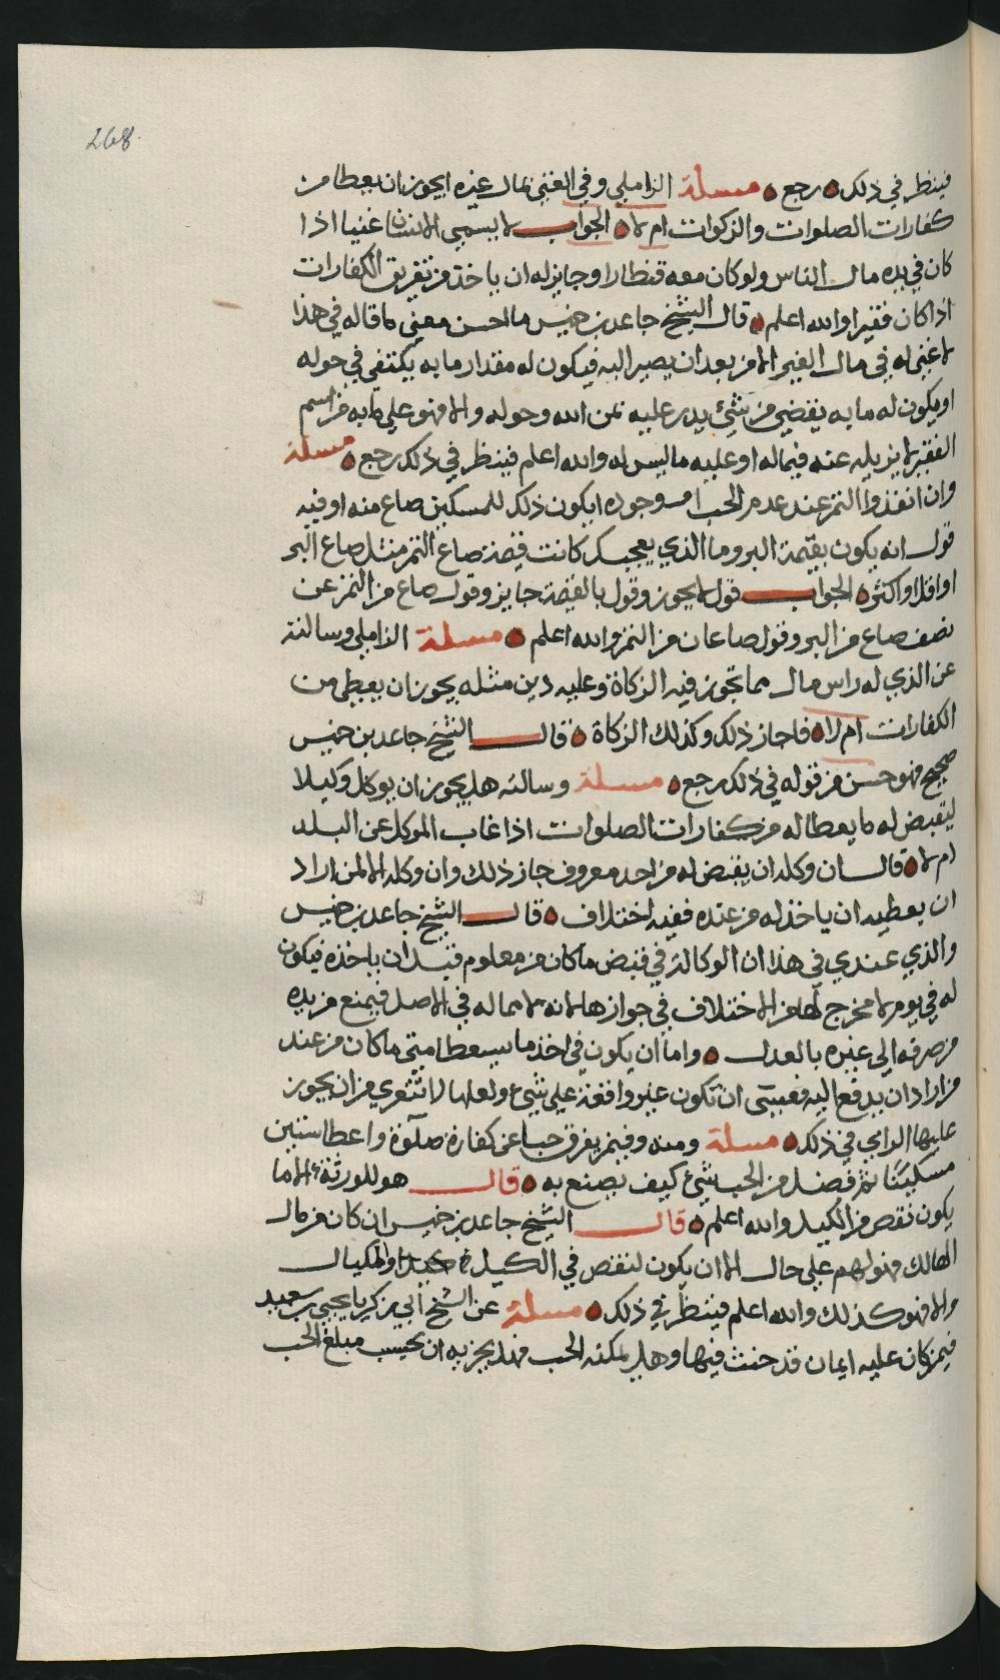 268
فينظر في ذلك رجع مسئلة الزاملي وفي الغني بمال غيره ايجوز ان يعطا من
كفارات الصلوات والزكوات ام لا الجواب لا يسمى الانسان غنيا اذا
كان في يده مال الناس ولو كان معه قنطارا وجايز له ان ياخذ من تفريق الكفارات
اذا كان فقيرا والله اعلم قال الشيخ جاعد بن خميس ما احسن معنى ما قاله في هذا
لا غنى له في مال الغير الا من بعد ان يصير اليه فيكون له مقدار ما به يكتفي في حوله
او يكون له ما به يقضي من شيء يدر عليه من الله وحوله والا فهو على ما به من اسم
الفقير لا يزيله عنه فيما له او عليه ما ليس له والله اعلم فينظر في ذلك رجع مسئلة
وان انفذوا التمر عند عدم الحب او وجوده ايكون ذلك للمسكين صاع منه او فيه
قول انه يكون بقيمة البر وما الذي يعجبك كانت قيمة صاع التمر مثل صاع البر
او اقل او اكثر الجواب قول لا يجوز وقول بالقيمة جايز وقول صاع من التمر عن
نصف صاع من البر وقول صاعان من التمر والله اعلم مسئلة الزاملي وسالته
عن الذي له راس مال مما تجوز فيه الزكاة وعليه دين مثله يجوز ان يعطى من
الكفارات ام لا فاجاز ذلك وكذلك الزكاة قال الشيخ جاعد بن خميس
صحيح فهو حسن من قوله في ذلك رجع مسئلة وسالته هل يجوز ان يوكل وكيلا
ليقبض له ما يعطا له من كفارات الصلوات اذا غاب الموكل عن البلد
ام لا قال ان وكله ان يقبض له من احد معروف جاز ذلك وان وكله الا لمن اراد
ان يعطيه ان ياخذ له من عنده ففيه اختلاف قال الشيخ جاعد بن خميس
والذي عندي في هذا ان الوكالة في قبض ما كان من معلوم قبل ان ياخذه فيكون
له في يوم لا مخرج لها من الاختلاف في جوازها لانه لا مما له في الاصل فيمنع من يده
من صرفه الى غيره بالعدل واما ان يكون في اخذ ما يعطا متى ما كان من عند
من اراد ان يدفع اليه فعسى ان تكون غير واقعة على شيء ولعلها لا تتعرى من ان يجوز
عليها الراي في ذلك مسئلة ومنه وفيمن يفرق حبا عن كفارة صلوة واعطا ستين
مسكينا ثم فضل من الحب شيء كيف يصنع به قال هو للورثة الا ما
يكون نقص من الكيل والله اعلم قال الشيخ جاعد بن خميس ان كان من مال
الهالك فهو لهم على حال الا ان يكون لنقص في الكيل والمكيال
والا فهو كذلك والله اعلم فينظر في ذلك مسئلة عن الشيخ ابي زكريا يحيى بن سعيد
فيمن كان عليه ايمان قد حنث فيها وهل يمكنه الحب فهل يجزيه ان يحسب مبلغ الحب